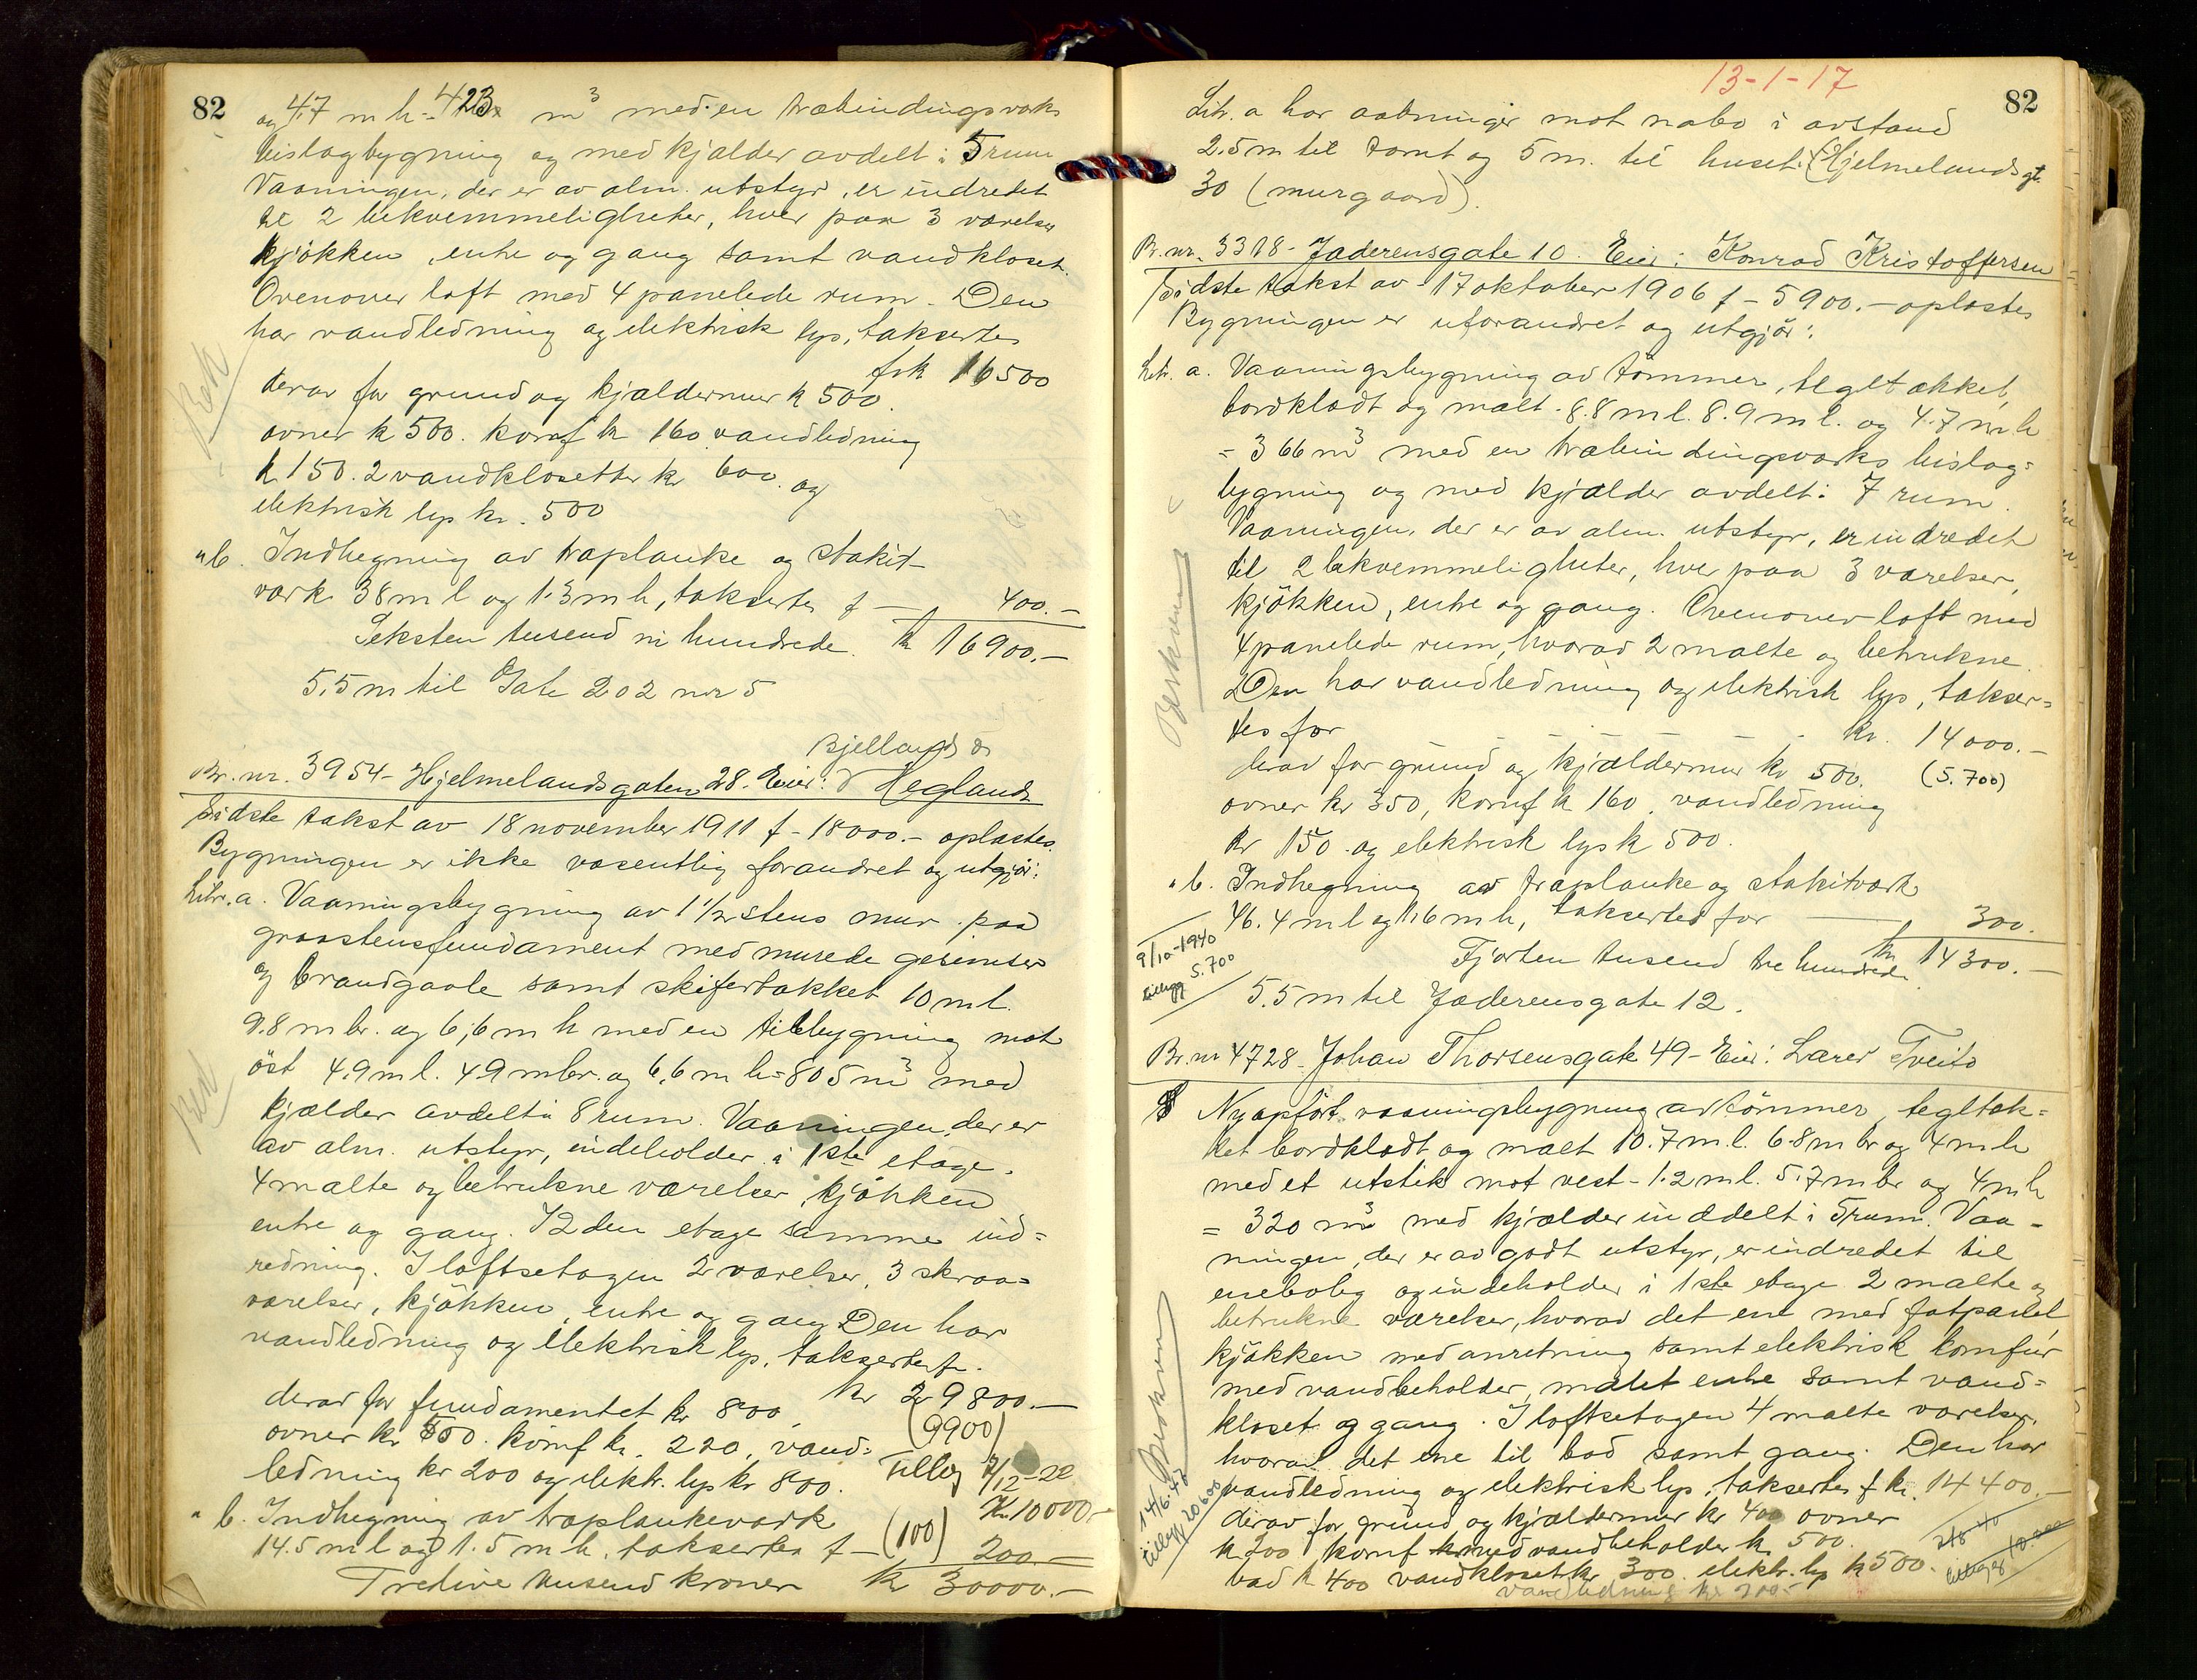 82
og 4.7 m h = 423 m³ med en træbindingsværks
bislagbygning og med kjælder avdelt i 5 rum
Vaaningen, der er av alm. utstyr, er indredet
til 2 bekvemmeligheter, hver paa 3 værelser
kjøkken, entre og gang samt vandkloset.
Ovenover loft med 4 panelede rum. Den
har vandledning og elektrisk lys, taksertes
for k 16500
derav for grund og kjældermur k 500.
ovner k 500. komf k 160 vandledning
k 150. 2 vandklosetter kr 600. og
elektrisk lys kr. 500
Bek
"b. Indhegning av træplanke og stakit-
værk 38 m l og 1.3 m h, taksertes f — 400.-
Seksten tusend ni hundrede. k 16900.-
5.5 m til Gate 202 nr 5
Bjelland &
Br. nr. 3954 - Hjelmelandsgaten 28. Eier: Hegland
Sidste takst av 18 november 1911 f - 18000.- oplæstes.
Bygningen er ikke væsentlig forandret og utgjør:
Litr. a. Vaaningsbygning av 1 1/2 stens mur paa
graastensfundament med murede gesimser
og brandgavle samt skifertækket 10 m l.
9.8 m br. og 6,6 m h med en tilbygning mot
öst 4.9 m l. 4.9 m br. og 6.6 m h = 805 m³ med
kjælder avdelt i 8 rum. Vaaningen, der er
av alm. utstyr, indeholder i 1ste etage
4 malte og betrukne værelser kjøkken
entre og gang. I 2den etage samme ind=
redning. I loftsetagen 2 værelser, 3 skraa=
værelser, kjøkken, entre og gang Den har
vandledning og elektrisk lys, taksertes f.
kr 29800.—
derav for fundamentet kr 800, (9900)
ovner kr 550. komf kr. 220, vand=
ledning kr 200 og elektr. lys kr 800. Tillæg 7/12-22
Kr 10000.-
" b. Indhegning av træplankeværk
14.5 m l og 1.5 m h, taksertes f — (100) 200.—
Tredive tusend kroner k 30000.—
13-1-17
82
Litr. a har aabninger mot nabo i avstand
2.5 m til tomt og 5 m. til huset (Hjelmelandsgt.
30 (murgaard).
Br. nr. 3318 - Jæderensgate 10. Eier: Konrad Kristoffersen
Sidste takst av 17 oktober 1906 f - 5900.- oplæstes
Bygningen er uforandret og utgjør:
Litr. a. Vaaningsbygning av tømmer, tegltækket,
bordklædt og malt. 8.8 m l. 8.9 m l. og 4.7 m h
= 366 m³ med en træbindingsværks bislag=
bygning og med kjælder avdelt i 7 rum.
Vaaningen, der er av alm. utstyr, er indredet
til 2 bekvemmeligheter, hver paa 3 værelser,
kjøkken, entre og gang. Ovenover loft med
4 panelede rum, hvorav 2 malte og betrukne.
Den har vandledning og elektrisk lys, takser=
tes for kr. 14000.-
derav for grund og kjældermur kr 500. (5.700)
ovner kr 350, komf k 160, vandledning
kr 150 og elektrisk lys k 500.
" b. Indhegning av træplanke og stakitværk
46.4 m l og 1.6 m h, taksertes for — 300.
9/10-1940
tillegg 5.700
Fjorten tusend tre hundrede kr 14300.—
5.5 m til Jæderensgate 12.
Br. nr 4728. Johan Thorsensgate 49 - Eier: Lærer Tveito
Nyopført vaaningsbygning av tömmer, tegltæk=
ket bordklædt og malt 10.7 m l. 6.8 m br og 4 m h
med et utstik mot vest - 1.2 m l. 5.7 m br og 4 m h
= 320 m³ med kjælder inddelt i 5 rum. Vaa-
ningen, der er av godt utstyr, er indredet til
enebolig og indeholder i 1ste etage 2 malte og
betrukne værelser, hvorav det ene med fatpanel
kjøkken med anretning samt elektrisk komfur
med vandbeholder, malet entre samt vand=
kloset og gang. I loftsetagen 4 malte værelser,
hvorav det ene til bad samt gang. Den har
vandledning og elektrisk lys, taksertes f kr. 14400.—
derav for grund og kjældermur kr 400 ovner
k 200, komf med vandbeholder k 500.
bad k 400 vandkloset kr 300. elektr. lys k 500.
vandledning kr 200.-
14/6.47
tillegg 20600
tillegg 10.000